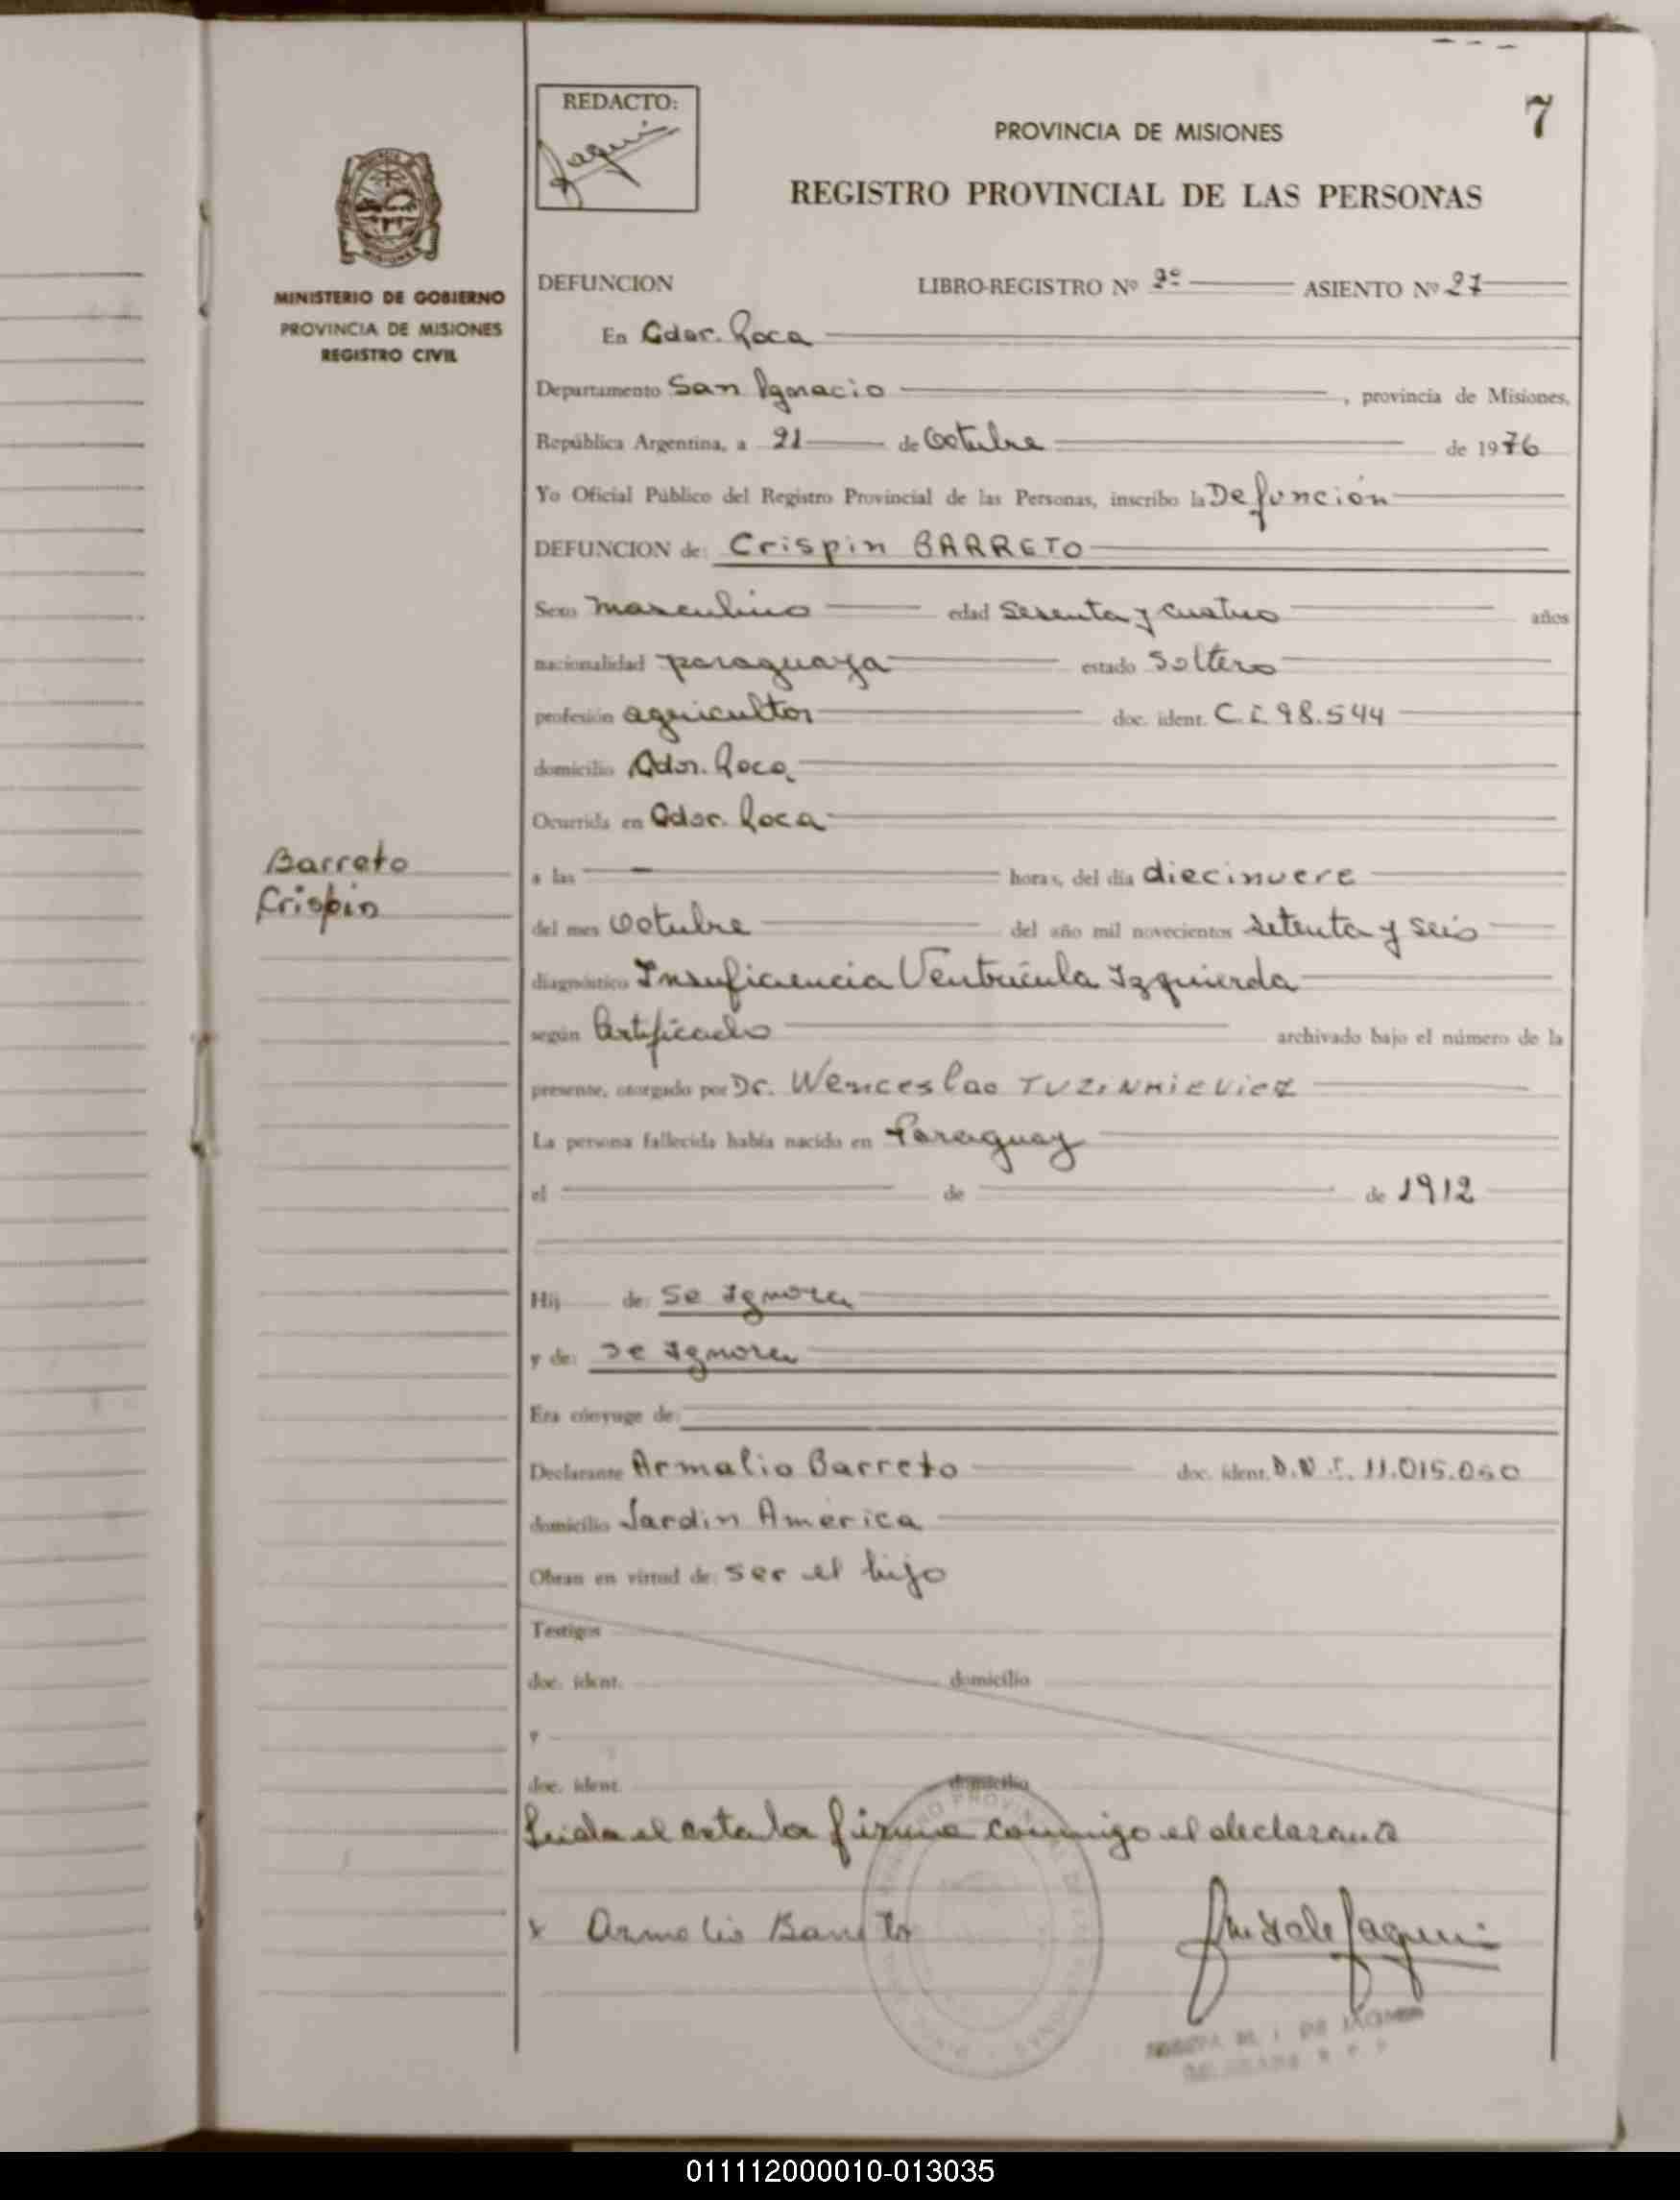 7
REDACTO:
PROVINCIA DE MISIONES
REGISTRO PROVINCIAL DE LAS PERSONAS
MINISTERIO DE GOBIERNO
PROVINCIA DE MISIONES
REGISTRO CIVIL
DEFUNCION LIBRO-REGISTRO Nº 2º ASIENTO Nº 27
En Gdor. Roca
Departamento San Ignacio, provincia de Misiones,
República Argentina, a 21 de Octubre de 1976
Yo Oficial Público del Registro Provincial de las Personas, inscribo la Defunción
DEFUNCION de: Crispin BARRETO
Sexo masculino edad sesenta y cuatro años
nacionalidad paraguaya estado soltero
profesión agricultor doc. ident. C.I. 98.544
domicilio Gdor. Roca
Ocurrida en Gdor. Roca
Barreto
Crispin
a las — horas, del día diecinueve
del mes Octubre del año mil novecientos setenta y seis
diagnóstico Insuficiencia Ventrícula Izquierda
según Certificado archivado bajo el número de la
presente, otorgado por Dr. Wenceslao TUZINKIEVICZ
La persona fallecida había nacido en Paraguay
el de de 1912
Hij de: Se Ignora
y de: Se Ignora
Era cónyuge de:
Declarante Armalio Barreto doc. ident. D.N.I. 11.015.050
domicilio Jardin América
Obran en virtud de: ser el hijo
Testigos
doc. ident. domicilio
y
doc. ident. domicilio
Leida el acta la firma conmigo el declarante
x Armalio Barreto
011112000010-013035